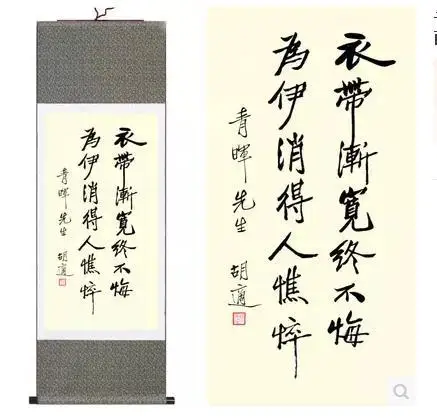 衣帶漸寬終不悔
為伊消得人憔悴
青暉先生 胡適
衣帶漸寬終不悔
為伊消得人憔悴
青暉先生 胡適